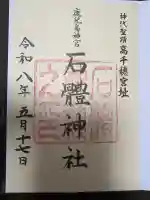 神代聖蹟 高千穂宮址
鹿児島神宮
石體神社
令和八年 五月十七日